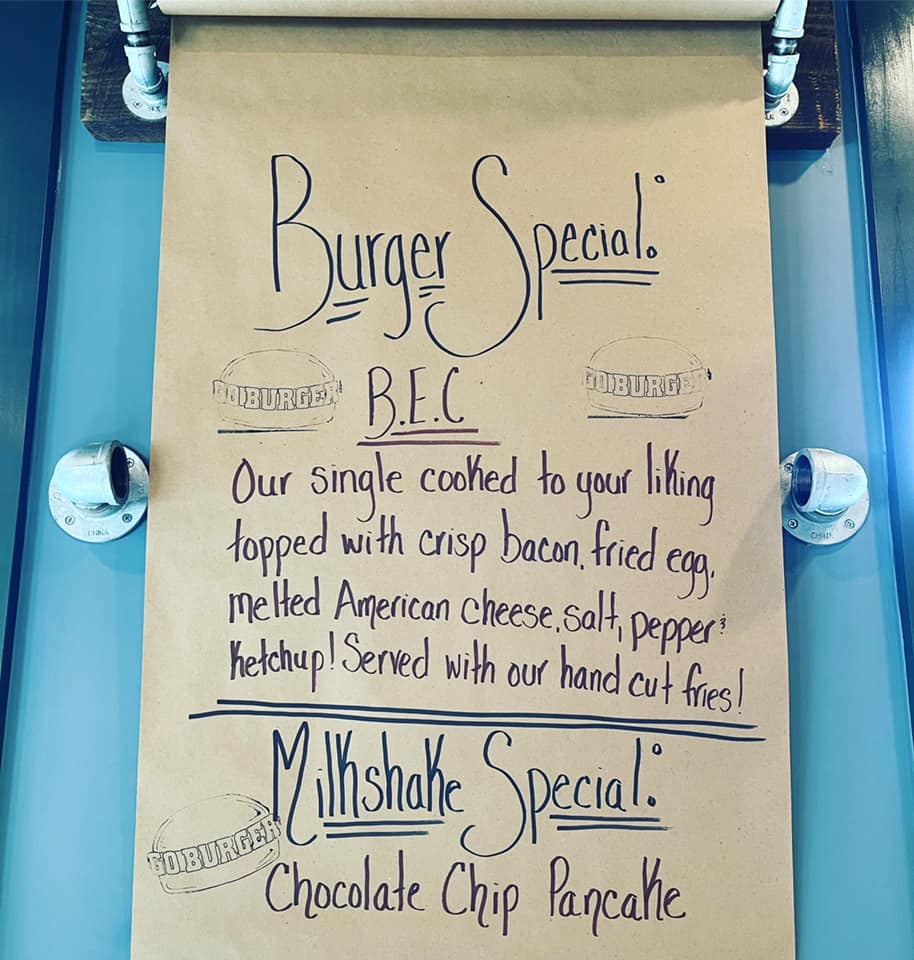 Burger Special:
GO BURGER
B.E.C
GO BURGER
Our single cooked to your liking
topped with crisp bacon, fried egg,
melted American cheese, salt, pepper &
Ketchup! Served with our hand cut fries!
Milkshake Special:
GO BURGER
Chocolate Chip Pancake
CHINA
CHINA